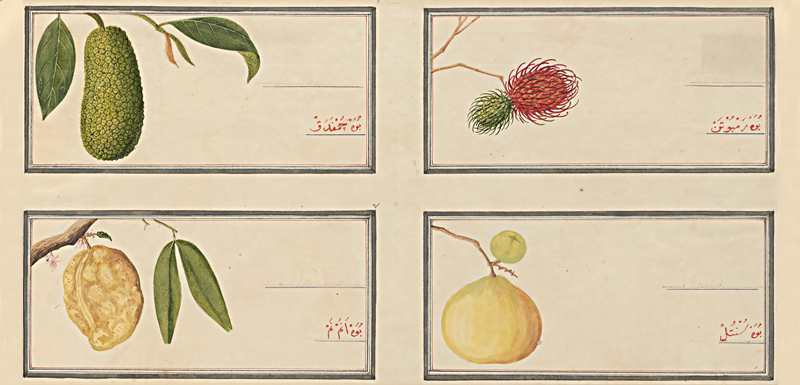 بُوَهْ چَمْفَدَقْ
بُوَهْ رَمْبُوْتَنْ
بُوَهْ اَنَمْ نَمْ
بُوَهْ سُنْتُلْ